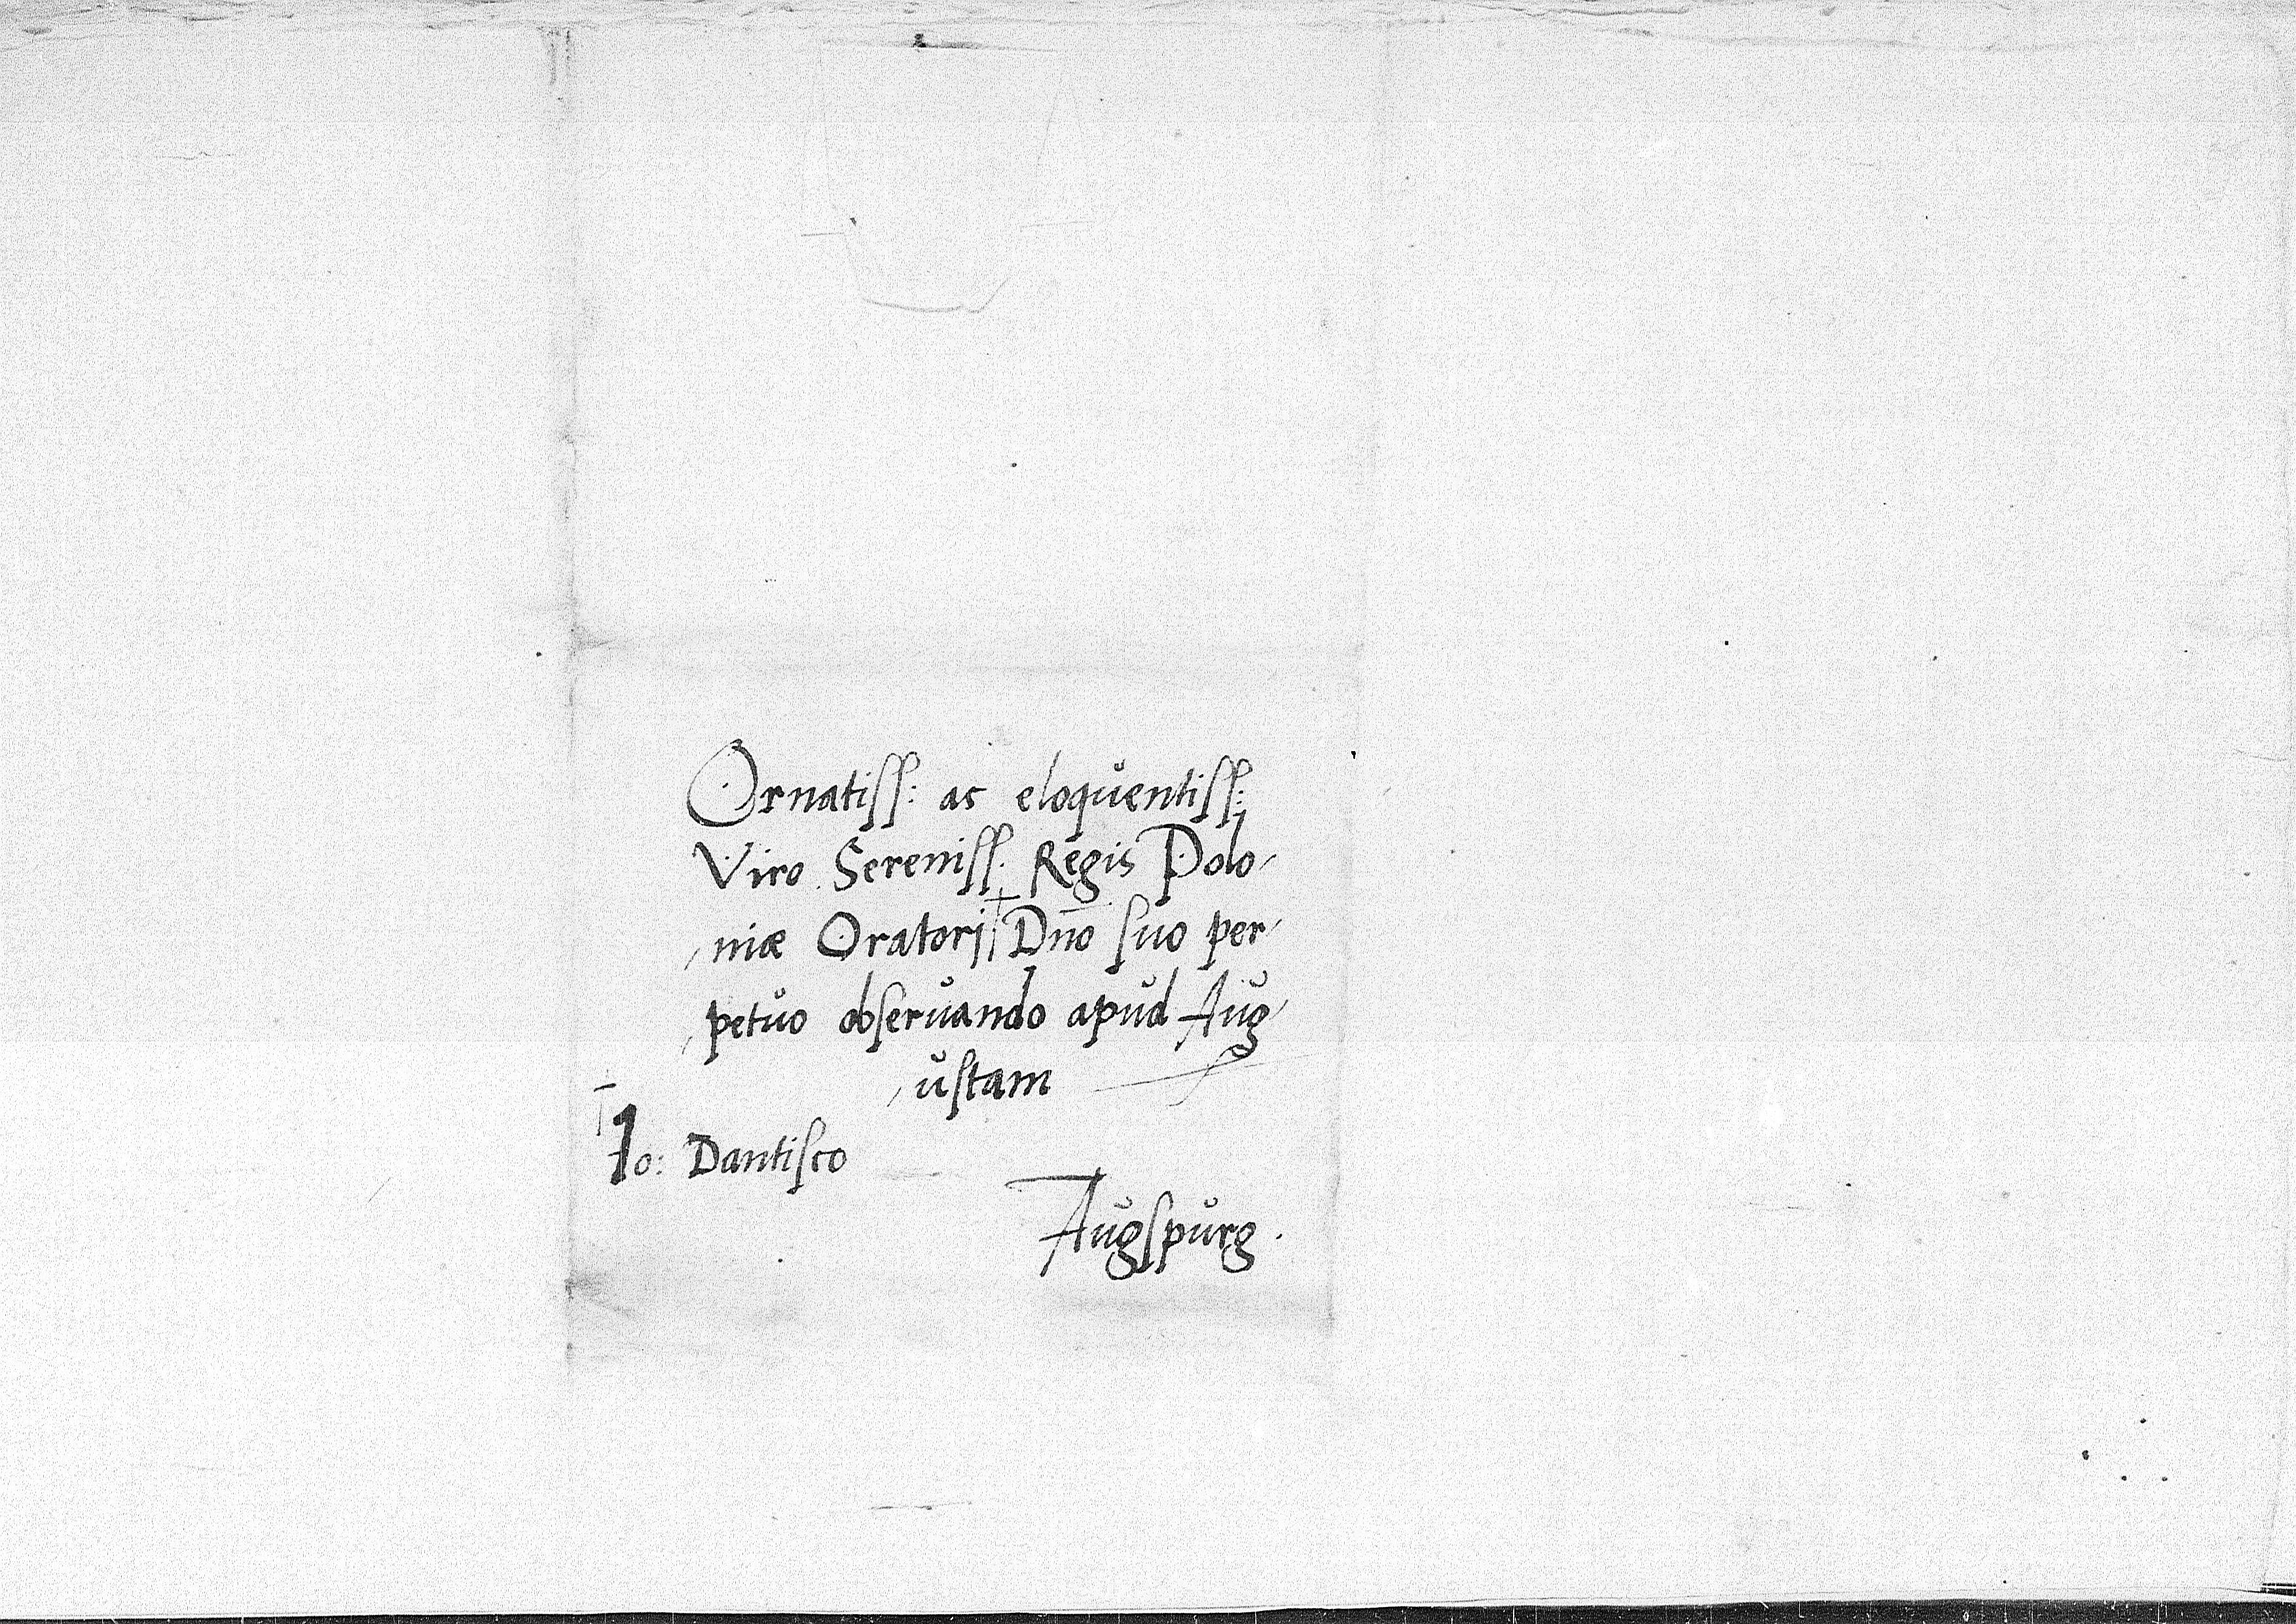 Ornatiss: ac eloquentiss:
Viro Sereniss. Regis Polo-
niæ Oratori Dn̄o suo per-
petuo obseruando apud Aug-
ustam
Io: Dantisco
Augspurg.